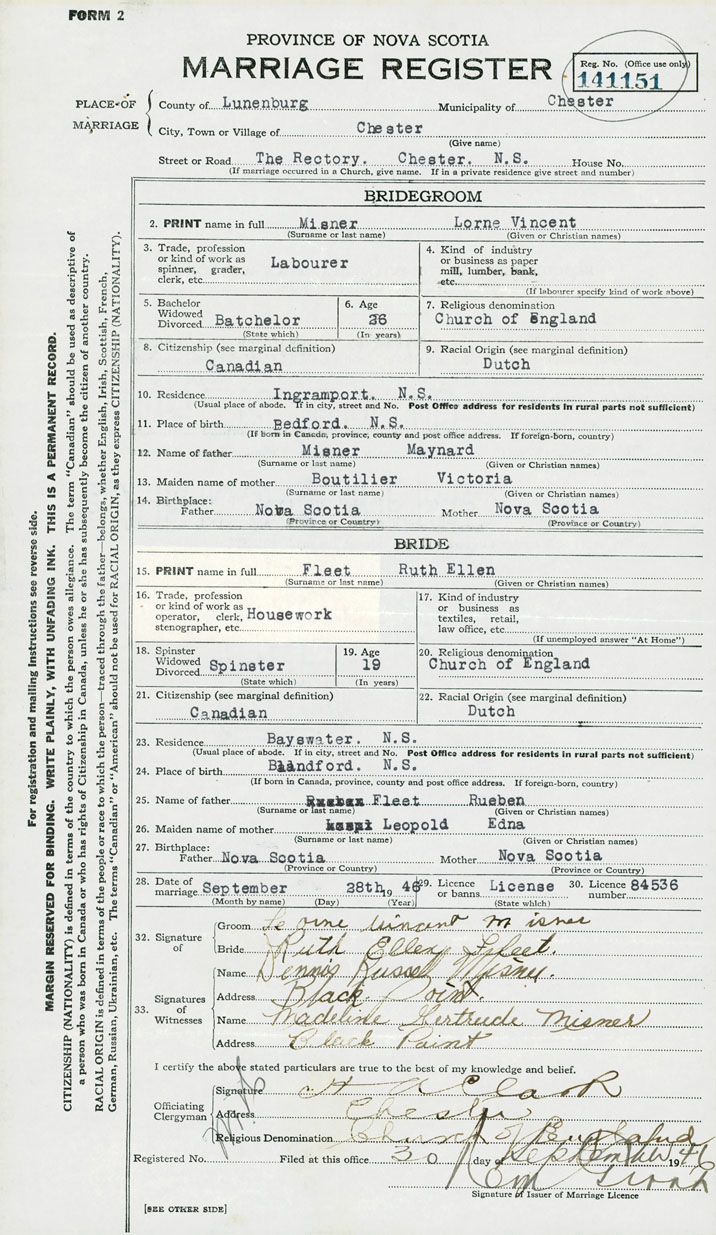 FORM 2
PROVINCE OF NOVA SCOTIA
MARRIAGE REGISTER
Reg. No. (Office use only)
141151
PLACE OF MARRIAGE
County of Lunenburg Municipality of Chester
City, Town or Village of Chester
(Give name)
Street or Road The Rectory. Chester. N.S. House No.
(If marriage occurred in a Church, give name. If in a private residence give street and number)
BRIDEGROOM
2. PRINT name in full Misner Lorne Vincent
(Surname or last name) (Given or Christian names)
3. Trade, profession or kind of work as spinner, grader, clerk, etc. Labourer
4. Kind of industry or business as paper mill, lumber, bank, etc.
(If labourer specify kind of work above)
5. Bachelor Widowed Divorced Batchelor
(State which)
6. Age 26
(In years)
7. Religious denomination
Church of England
8. Citizenship (see marginal definition)
Canadian
9. Racial Origin (see marginal definition)
Dutch
10. Residence Ingramport. N.S.
(Usual place of abode. If in city, street and No. Post Office address for residents in rural parts not sufficient)
11. Place of birth Bedford. N.S.
(If born in Canada, province, county and post office address. If foreign-born, country)
12. Name of father Misner Maynard
(Surname or last name) (Given or Christian names)
13. Maiden name of mother Boutilier Victoria
(Surname or last name) (Given or Christian names)
14. Birthplace:
Father Nova Scotia Mother Nova Scotia
(Province or Country) (Province or Country)
BRIDE
15. PRINT name in full Fleet Ruth Ellen
(Surname or last name) (Given or Christian names)
16. Trade, profession or kind of work as operator, clerk, stenographer, etc. Housework
17. Kind of industry or business as textiles, retail, law office, etc.
(If unemployed answer "At Home")
18. Spinster Widowed Divorced Spinster
(State which)
19. Age
19
(In years)
20. Religious denomination
Church of England
21. Citizenship (see marginal definition)
Canadian
22. Racial Origin (see marginal definition)
Dutch
23. Residence Bayswater. N.S.
(Usual place of abode. If in city, street and No. Post Office address for residents in rural parts not sufficient)
24. Place of birth Blandford. N.S.
(If born in Canada, province, county and post office address. If foreign-born, country)
25. Name of father Fleet Rueben
(Surname or last name) (Given or Christian names)
26. Maiden name of mother Leopold Edna
(Surname or last name) (Given or Christian names)
27. Birthplace:
Father Nova Scotia Mother Nova Scotia
(Province or Country) (Province or Country)
28. Date of marriage September 28th 19 46
(Month by name) (Day) (Year)
29. Licence or banns License
(State which)
30. Licence number 84536
32. Signature of
Groom Lorne Vincent Misner
Bride Ruth Ellen Fleet.
33. Signatures of Witnesses
Name Dennis Russell Misner.
Address Black Point.
Name Madeline Gertrude Misner
Address Black Point
I certify the above stated particulars are true to the best of my knowledge and belief.
Officiating Clergyman
Signature H A Clark
Address Chester
Religious Denomination Church of England
Registered No. Filed at this office 30 day of September 19 46
Signature of Issuer of Marriage Licence
[SEE OTHER SIDE]
For registration and mailing Instructions see reverse side.
MARGIN RESERVED FOR BINDING. WRITE PLAINLY, WITH UNFADING INK. THIS IS A PERMANENT RECORD.
CITIZENSHIP (NATIONALITY) is defined in terms of the country to which the person owes allegiance. The term "Canadian" should be used as descriptive of
a person who was born in Canada or who has rights of Citizenship in Canada, unless he or she has subsequently become the citizen of another country.
RACIAL ORIGIN is defined in terms of the people or race to which the person—traced through the father—belongs, whether English, Irish, Scottish, French,
German, Russian, Ukrainian, etc. The terms "Canadian" or "American" should not be used for RACIAL ORIGIN, as they express CITIZENSHIP (NATIONALITY).